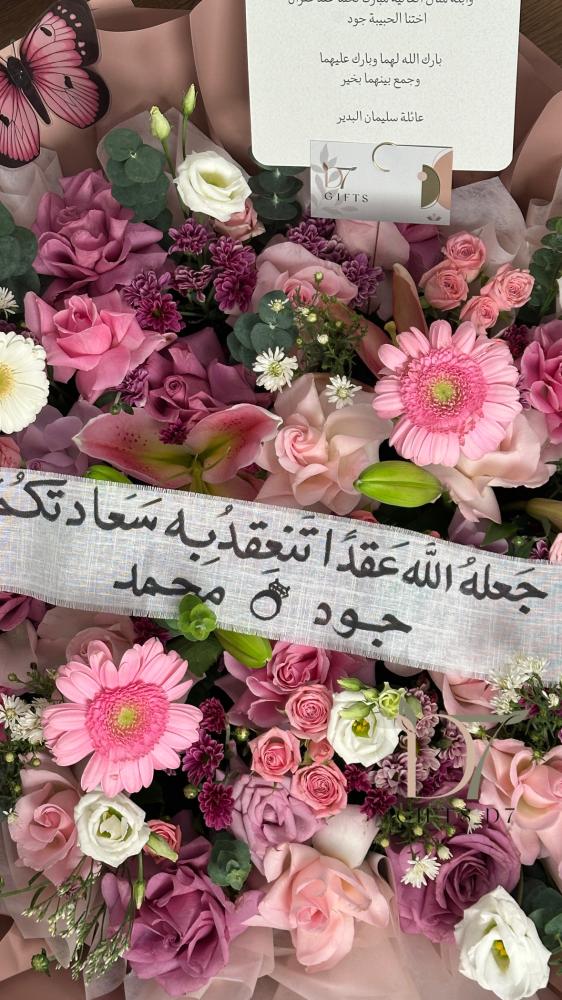 اختنا الحبيبة جود
بارك الله لهما وبارك عليهما
وجمع بينهما بخير
عائلة سليمان البدير
D7
GIFTS
جَعلهُ اللَّه عَقدًا تَنعَقدُ بِه سَعادتكُم
جود محمد
D7
GIFTS D7